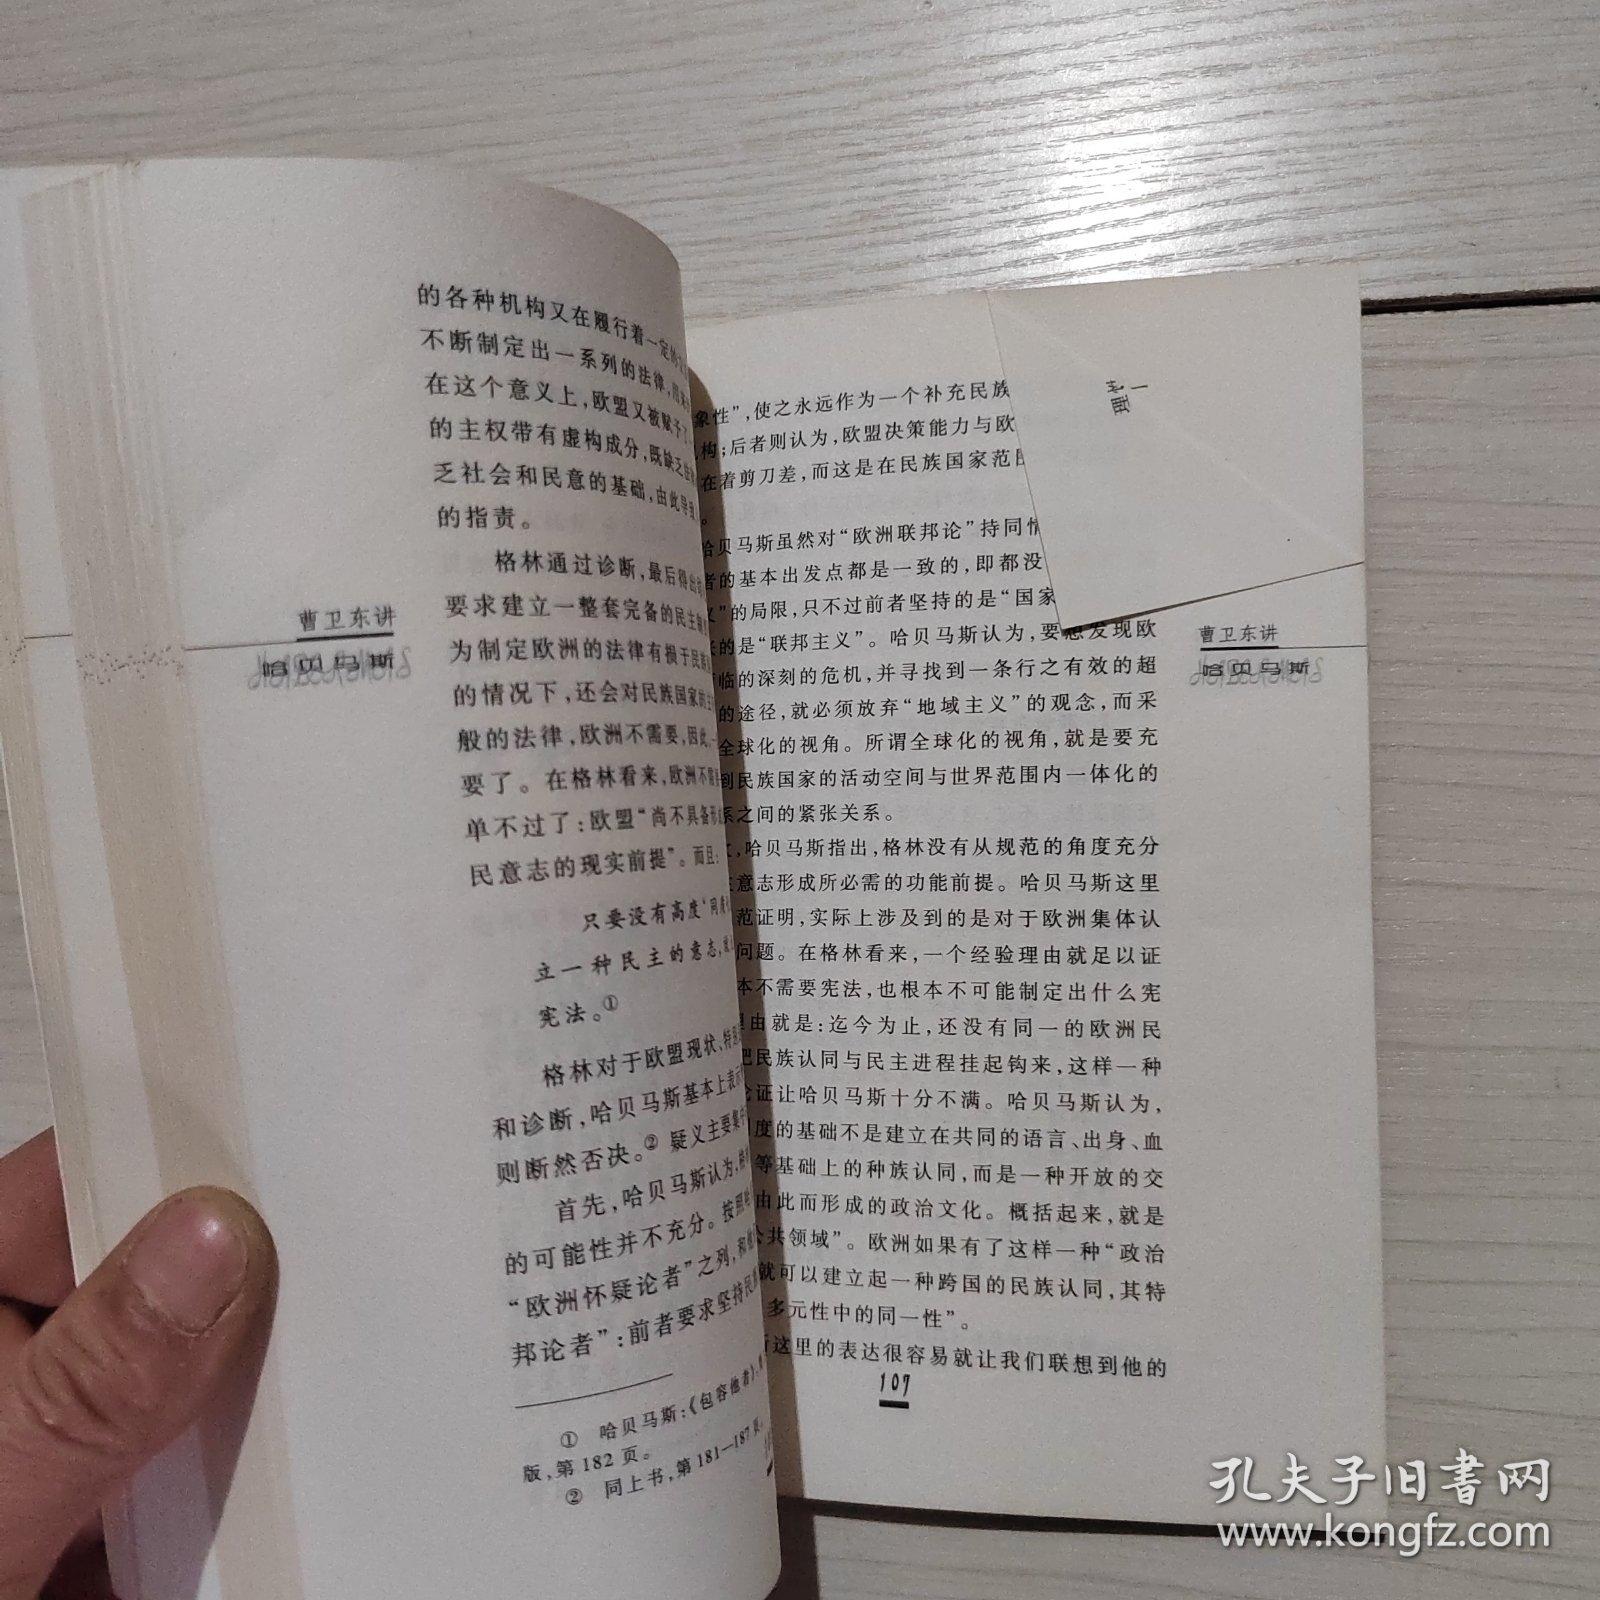 的各种机构又在履行着一定的
不断制定出一系列的法律,用来
在这个意义上,欧盟又被赋予了
的主权带有虚构成分,既缺乏
乏社会和民意的基础,由此导致
的指责。
格林通过诊断,最后得出
要求建立一整套完备的民主
为制定欧洲的法律有损于民
的情况下,还会对民族国家的主
般的法律,欧洲不需要,因此,一
要了。在格林看来,欧洲不
单不过了:欧盟“尚不具备形
民意志的现实前提”。而且:
只要没有高度‘同
立一种民主的意志,
宪法。①
格林对于欧盟现状、特
和诊断,哈贝马斯基本上表示
则断然否决。②疑义主要集中
首先,哈贝马斯认为,格
的可能性并不充分。按照
“欧洲怀疑论者”之列,和
邦论者”:前者要求坚持民
① 哈贝马斯:《包容他者》,
版,第182页。
② 同上书,第181—187页。
曹卫东讲
哈贝马斯
象性”,使之永远作为一个补充民族
构;后者则认为,欧盟决策能力与欧
在着剪刀差,而这是在民族国家范
。
哈贝马斯虽然对“欧洲联邦论”持同
者的基本出发点都是一致的,即都没
义”的局限,只不过前者坚持的是“国家
的是“联邦主义”。哈贝马斯认为,要想发现欧
临的深刻的危机,并寻找到一条行之有效的超
的途径,就必须放弃“地域主义”的观念,而采
全球化的视角。所谓全球化的视角,就是要充
到民族国家的活动空间与世界范围内一体化的
系之间的紧张关系。
,哈贝马斯指出,格林没有从规范的角度充分
意志形成所必需的功能前提。哈贝马斯这里
范证明,实际上涉及到的是对于欧洲集体认
问题。在格林看来,一个经验理由就足以证
本不需要宪法,也根本不可能制定出什么宪
由就是:迄今为止,还没有同一的欧洲民
把民族认同与民主进程挂起钩来,这样一种
证让哈贝马斯十分不满。哈贝马斯认为,
度的基础不是建立在共同的语言、出身、血
等基础上的种族认同,而是一种开放的交
由此而形成的政治文化。概括起来,就是
公共领域”。欧洲如果有了这样一种“政治
就可以建立起一种跨国的民族认同,其特
多元性中的同一性”。
这里的表达很容易就让我们联想到他的
107
曹卫东讲
哈贝马斯
孔夫子旧书网
www.kongfz.com